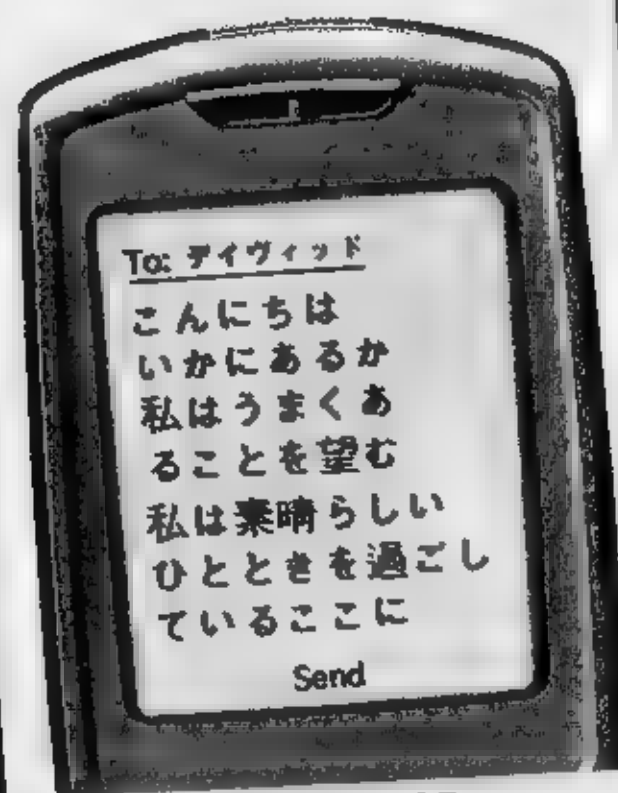 To: デイヴィッド
こんにちは
いかにあるか
私はうまくあ
ることを望む
私は素晴らしい
ひとときを過ごし
ているここに
Send